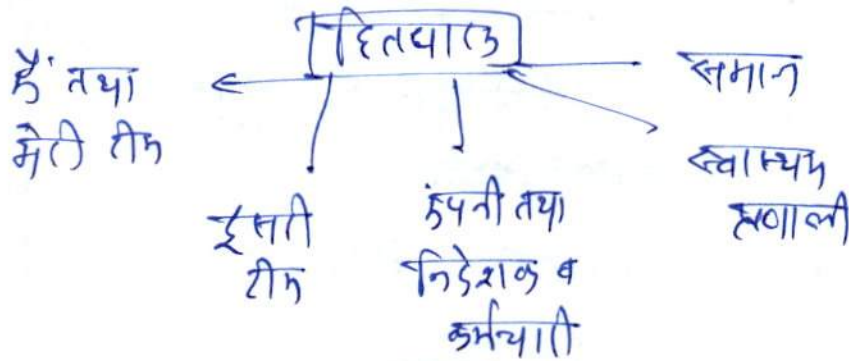 हितधारक
मैं तथा
मेरी टीम
दूसरी
टीम
कंपनी तथा
निदेशक व
कर्मचारी
समाज
स्वास्थ्य
प्रणाली